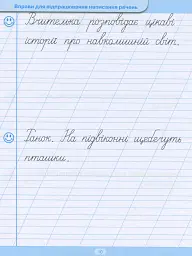 Вправи для відпрацювання написання речень
Вчителька розповідає цікаві
історії про навколишній світ.
Ранок. На підвіконні щебечуть
пташки.